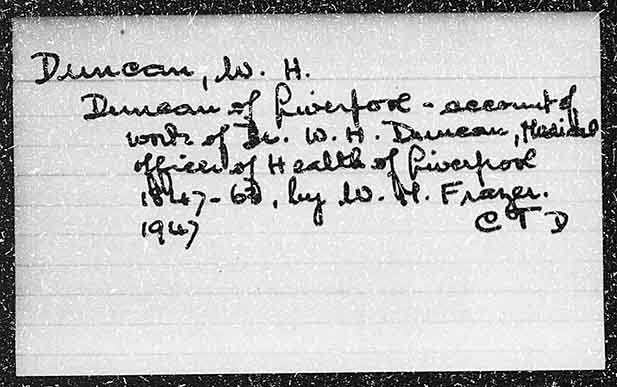 Duncan, W. H.
Duncan of Liverpool - account of
work of Dr. W. H. Duncan, Medical
officer of Health of Liverpool
1847-63, by W. M. Frazer.
1947 C T D